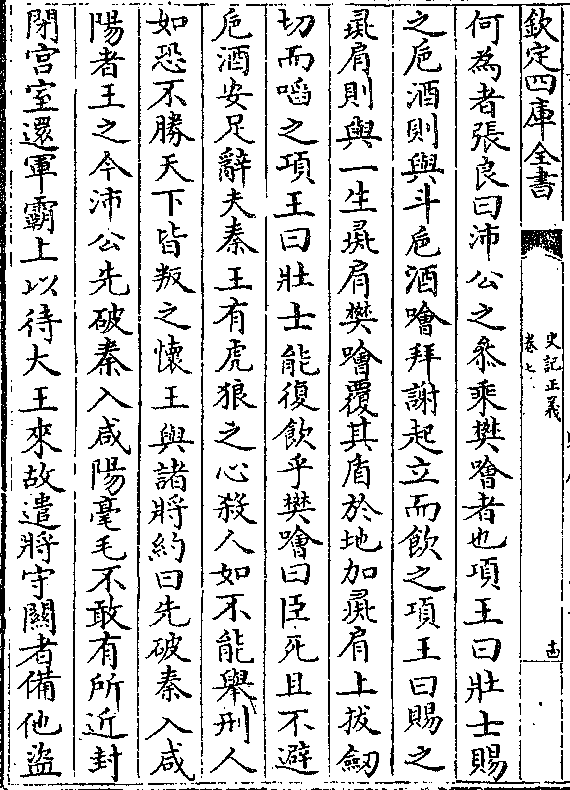 欽定四庫全書
史記正義
卷七
何為者張良曰沛公之叅乗樊噲者也項王曰壯士賜
之巵酒則與斗巵酒噲拜謝起立而飲之項王曰賜之
彘肩則與一生彘肩樊噲覆其盾於地加彘肩上拔劒
切而啗之項王曰壯士能復飲乎樊噲曰臣死且不避
巵酒安足辭夫秦王有虎狼之心殺人如不能舉刑人
如恐不勝天下皆叛之懷王與諸將約曰先破秦入咸
陽者王之今沛公先破秦入咸陽毫毛不敢有所近封
閉宫室還軍霸上以待大王來故遣將守關者備他盜